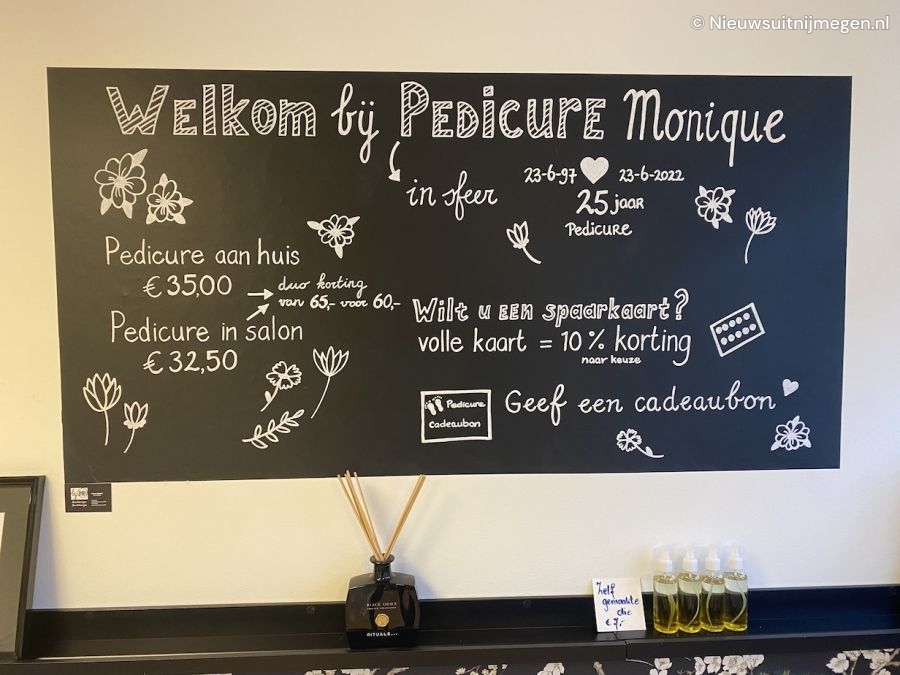 © Nieuwsuitnijmegen.nl
Welkom bij Pedicure Monique
in sfeer
23-6-97 23-6-2022
25 jaar
Pedicure
Pedicure aan huis
€ 35,00
duo korting
van 65,- voor 60,-
Pedicure in salon
€ 32,50
Wilt u een spaarkaart?
volle kaart = 10 % korting
naar keuze
Pedicure
Cadeaubon
Geef een cadeaubon
RITUALS...
Zelf
gemaakte
olie
€ 7,-